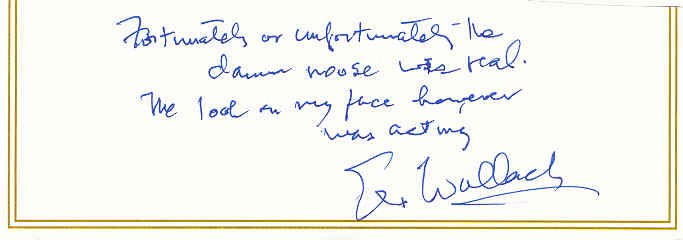 Fortunately or unfortunately - the
damn noose was real.
The look on my face however
was acting
Eli Wallach